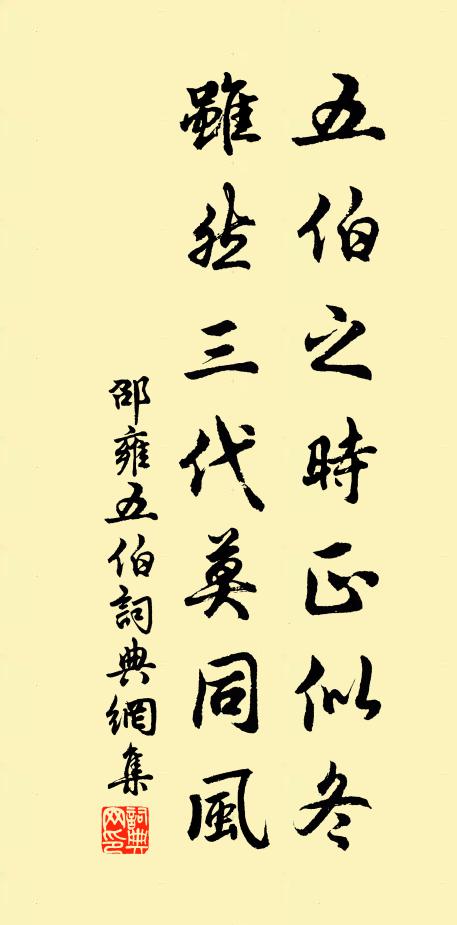 五伯之時正似冬
雖然三代莫同風
邵雍五伯詞典網集
詞典網印